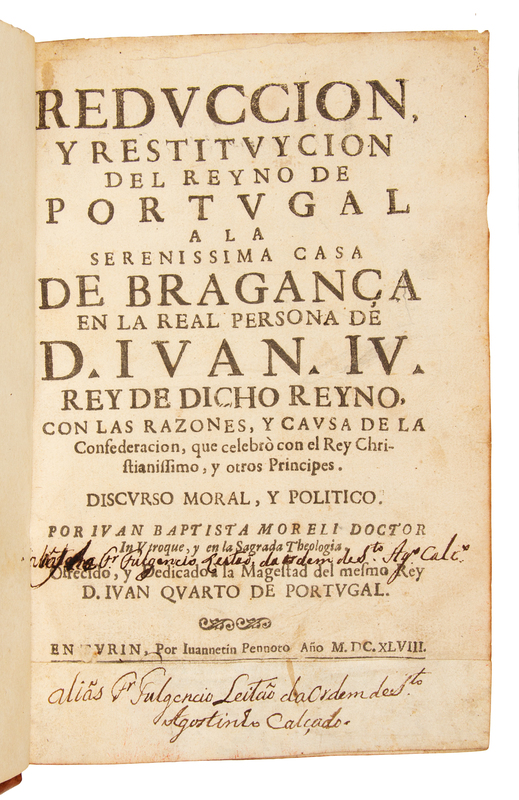 REDVCCION,
Y RESTITVYCION
DEL REYNO DE
PORTVGAL
A LA
SERENISSIMA CASA
DE BRAGANÇA
EN LA REAL PERSONA DE
D. IVAN. IV.
REY DE DICHO REYNO,
CON LAS RAZONES, Y CAVSA DE LA
Confederacion, que celebrò con el Rey Chri-
stianissimo, y otros Principes.
DISCVRSO MORAL, Y POLITICO.
POR IVAN BAPTISTA MORELI DOCTOR
In Vtroque, y en la Sagrada Theologia,
Fr Fulgencio Leitão da ordem de S.to Ag.o Calç.o
Ofrecido, y Dedicado a la Magestad del mesmo Rey
D. IVAN QVARTO DE PORTVGAL.
EN TVRIN, Por Iuannetin Pennoto Año M. DC. XLVIII.
aliãs Fr Fulgencio Leitão da ordem de S.to
Agostinho Calçado.